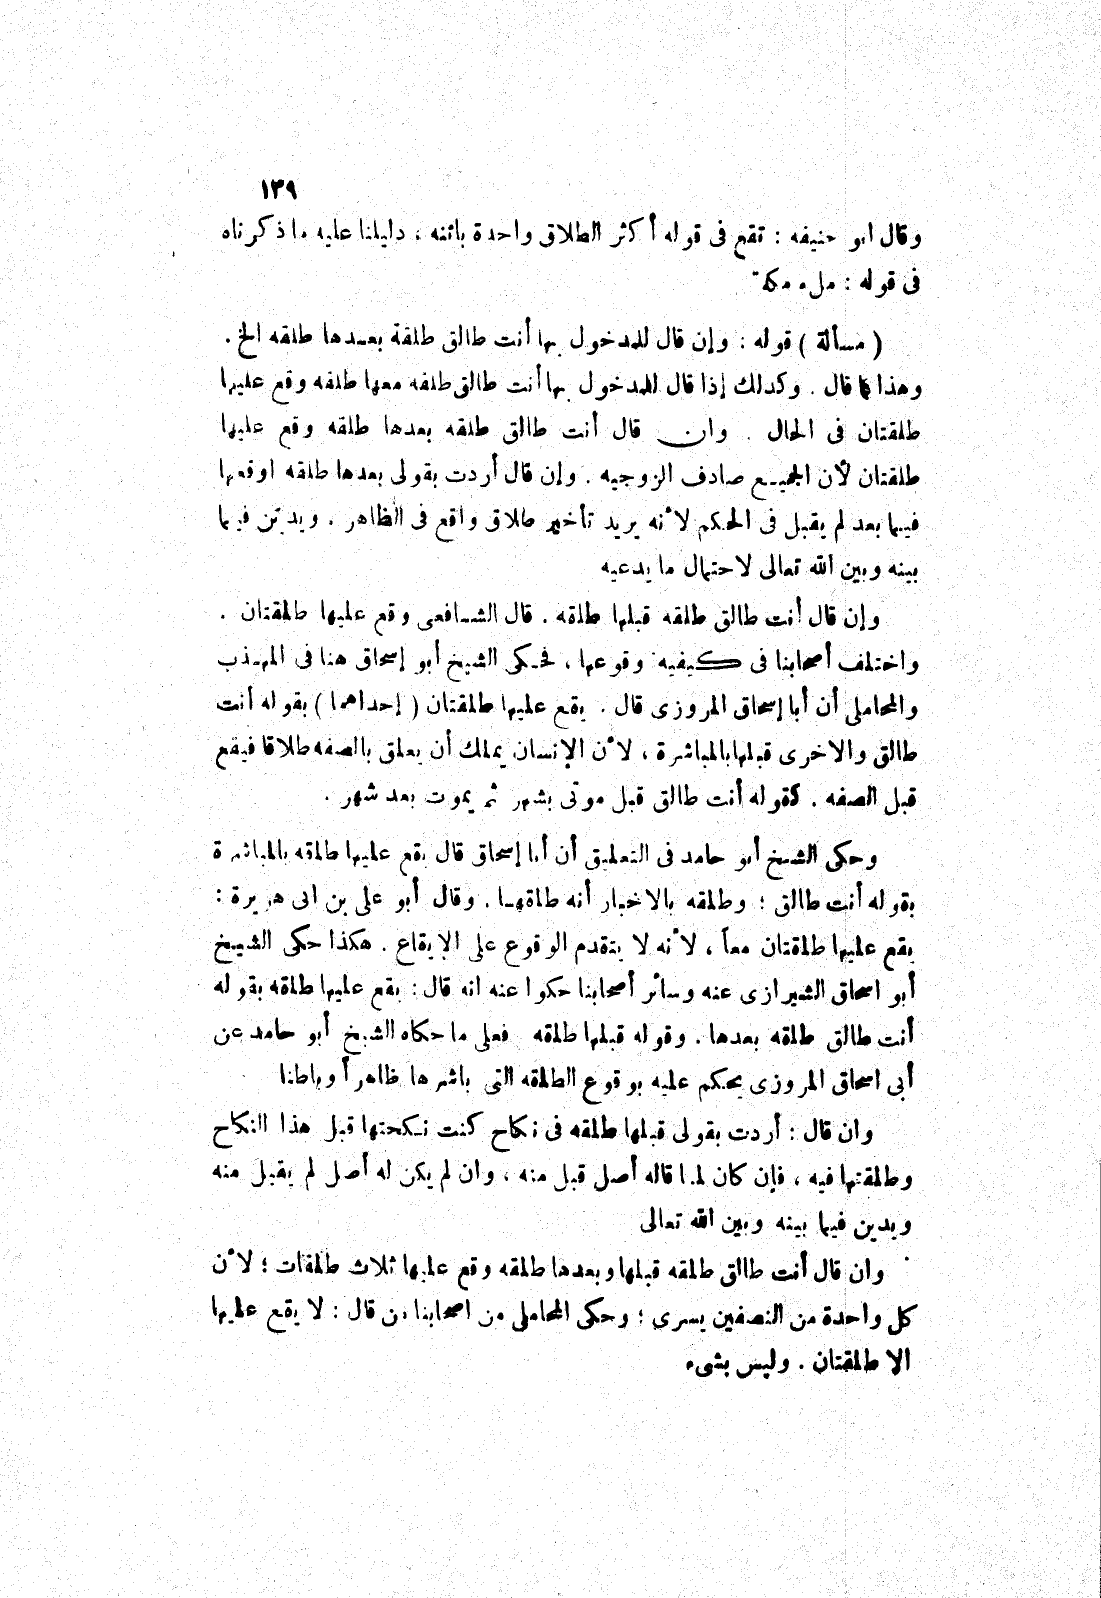 ١٣٩
وقال أبو حنيفه : تقع فى قوله أكثر الطلاق واحدة بائنه ، دليلنا عليه ما ذكرناه
فى قوله : ملء مكة
( مسألة ) قوله : وإن قال للمدخول بها أنت طالق طلقة بعدها طلقه الخ .
وهذا كما قال . وكذلك إذا قال للمدخول بها أنت طالق طلقه معها طلقه وقع عليها
طلقتان فى الحال . وان قال أنت طالق طلقه بعدها طلقه وقع عليها
طلقتان لأن الجميع صادف الزوجيه . وإن قال أردت بقولى بعدها طلقه اوقعها
فيما بعد لم يقبل فى الحكم لأنه يريد تأخير طلاق واقع فى الظاهر . ويدين فيما
بينه وبين الله تعالى لاحتمال ما يدعيه
وإن قال أنت طالق طلقه قبلها طلقه . قال الشافعى وقع عليها طلقتان .
واختلف أصحابنا فى كيفيه وقوعها ، فحكى الشيخ أبو إسحاق هنا فى المهذب
والمحاملى أن أبا إسحاق المروزى قال . يقع عليها طلقتان ( إحداهما ) بقوله أنت
طالق والاخرى قبلها بالمباشرة ، لأن الإنسان يملك أن يعلق بالصفه طلاقا فيقع
قبل الصفه . كقوله أنت طالق قبل موتى بشهر ثم يموت بعد شهر .
وحكى الشيخ أبو حامد فى التعليق أن أبا إسحاق قال يقع عليها طلقه بالمباشرة
بقوله أنت طالق ؛ وطلقه بالاخبار أنه طلقها . وقال أبو على بن ابى هريرة :
يقع عليها طلقتان معاً ، لأنه لا يتقدم الوقوع على الإيقاع . هكذا حكى الشيخ
أبو اسحاق الشيرازى عنه وسائر أصحابنا حكوا عنه انه قال : يقع عليها طلقه بقوله
أنت طالق طلقه بعدها . وقوله قبلها طلقه فعلى ما حكاه الشيخ أبو حامد عن
أبى اسحاق المروزى يحكم عليه بوقوع الطلقه التى باشرها ظاهراً وباطنا
وان قال : أردت بقولى قبلها طلقه فى نكاح كنت نكحتها قبل هذا النكاح
وطلقتها فيه ، فإن كان لما قاله أصل قبل منه ، وان لم يكن له أصل لم يقبل منه
ويدين فيما بينه وبين الله تعالى
وان قال أنت طالق طلقه قبلها وبعدها طلقه وقع عليها ثلاث طلقات ؛ لأن
كل واحدة من النصفين يسرى ؛ وحكى المحاملى من اصحابنا من قال : لا يقع عليها
الا طلقتان . وليس بشىء